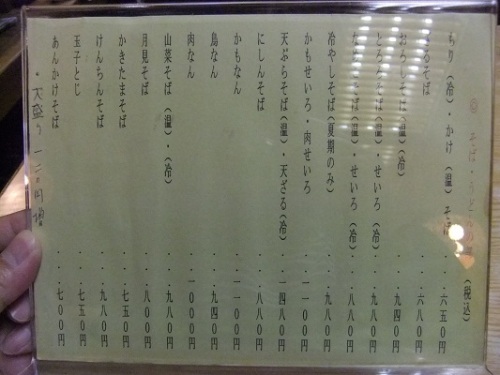 そば・うどん
(税込)
もり(冷)・かけ(温)そば・・・六五〇円
ざるそば・・・六八〇円
おろしそば(温)(冷)・・・九四〇円
とろろそば(温)・せいろ(冷)・・・九八〇円
なめこそば(温)・せいろ(冷)・・・八八〇円
冷やしそば(夏期のみ)・・・九八〇円
かもせいろ・肉せいろ・・・一一〇〇円
天ぷらそば(温)・天ざる(冷)・・・一四八〇円
にしんそば・・・八八〇円
かもなん・・・一一〇〇円
鳥なん・・・九四〇円
肉なん・・・一〇〇〇円
山菜そば(温)・(冷)・・・九八〇円
月見そば・・・八〇〇円
かきたまそば・・・七五〇円
けんちんそば・・・九八〇円
玉子とじ・・・七五〇円
あんかけそば・・・七〇〇円
・大盛り 一二〇円増